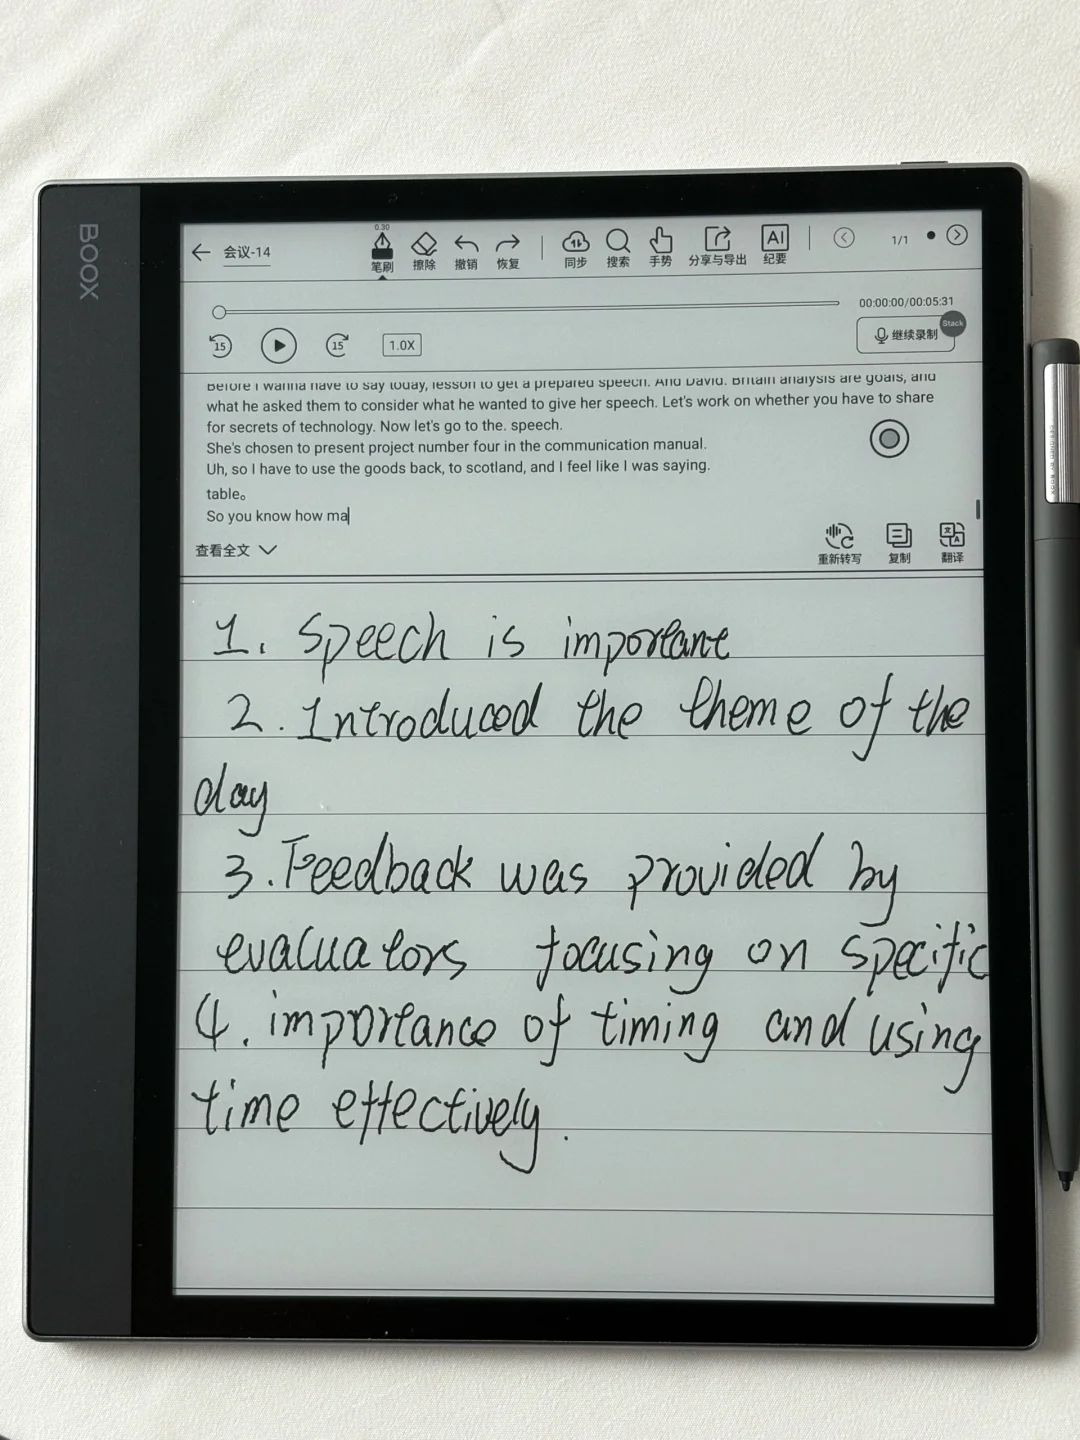 BOOX
会议-14
0.30
笔刷 擦除 撤销 恢复 同步 搜索 手势 分享与导出 AI 纪要 1/1
00:00:00/00:05:31
15 15 1.0X 继续录制 Stack
Before I wanna have to say today, lesson to get a prepared speech. And David. Britain analysis are goals, and
what he asked them to consider what he wanted to give her speech. Let's work on whether you have to share
for secrets of technology. Now let's go to the. speech.
She's chosen to present project number four in the communication manual.
Uh, so I have to use the goods back, to scotland, and I feel like I was saying.
table。
So you know how ma
查看全文
重新转写 复制 翻译
1. Speech is important
2. Introduced the theme of the
day
3. Feedback was provided by
evaluators focusing on specific
4. importance of timing and using
time effectively.